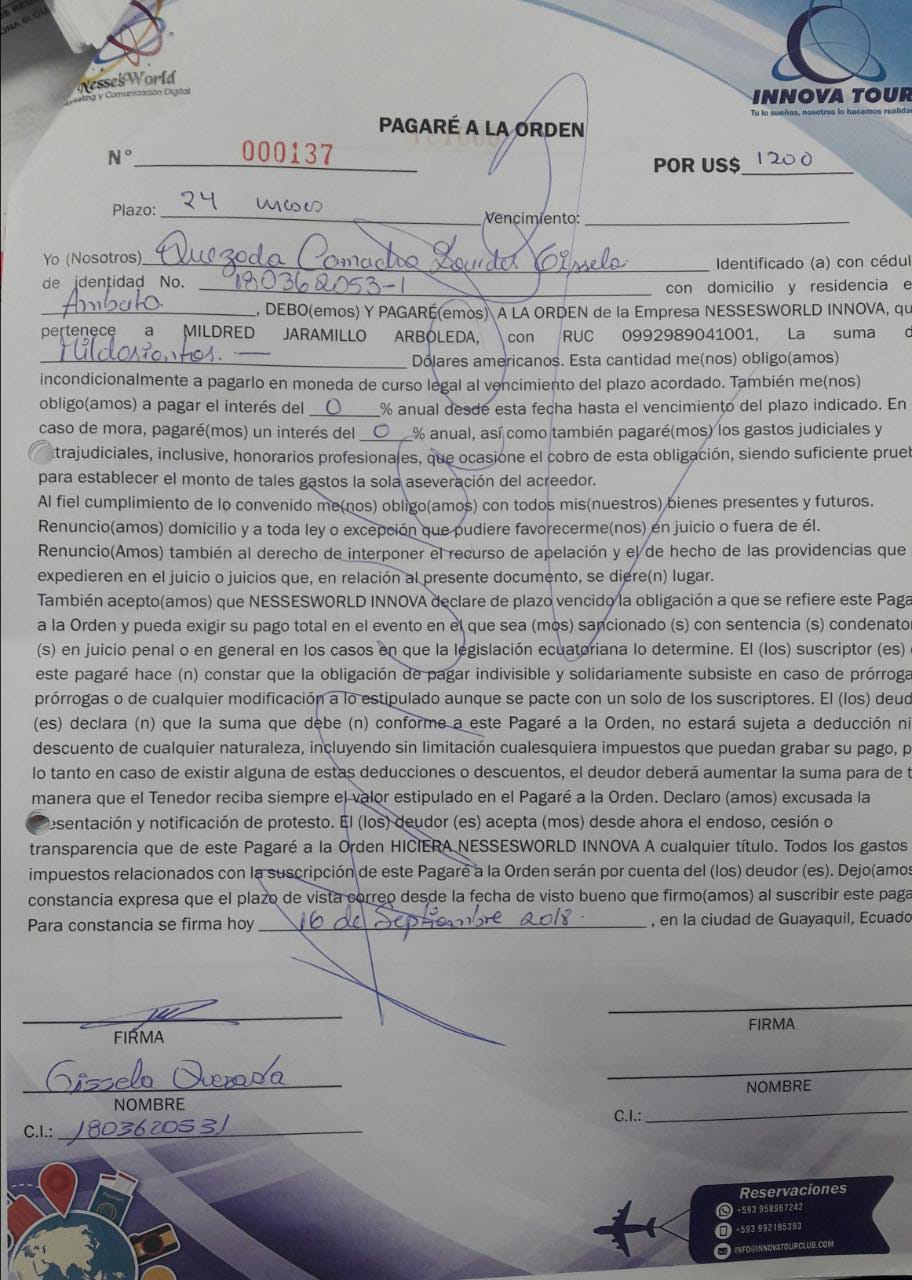 Nesse'sWorld
INNOVA TOUR
Marketing y Comunicación Digital
Tu lo sueñas, nosotros lo hacemos realidad
PAGARÉ A LA ORDEN
N° 000137
POR US$ 1200
Plazo: 24 meses Vencimiento:
Yo (Nosotros) Quezada Camacho Lourdes Gissela Identificado (a) con cédul
de identidad No. 180362053-1 con domicilio y residencia e
Ambato. , DEBO(emos) Y PAGARÉ(emos) A LA ORDEN de la Empresa NESSESWORLD INNOVA, qu
pertenece a MILDRED JARAMILLO ARBOLEDA, con RUC 0992989041001, La suma d
Mildosientos. — Dólares americanos. Esta cantidad me(nos) obligo(amos)
incondicionalmente a pagarlo en moneda de curso legal al vencimiento del plazo acordado. También me(nos)
obligo(amos) a pagar el interés del 0 % anual desde esta fecha hasta el vencimiento del plazo indicado. En
caso de mora, pagaré(mos) un interés del 0 % anual, así como también pagaré(mos) los gastos judiciales y
trajudiciales, inclusive, honorarios profesionales, que ocasione el cobro de esta obligación, siendo suficiente prueb
para establecer el monto de tales gastos la sola aseveración del acreedor.
Al fiel cumplimiento de lo convenido me(nos) obligo(amos) con todos mis(nuestros) bienes presentes y futuros.
Renuncio(amos) domicilio y a toda ley o excepción que pudiere favorecerme(nos) en juicio o fuera de él.
Renuncio(Amos) también al derecho de interponer el recurso de apelación y el de hecho de las providencias que
expedieren en el juicio o juicios que, en relación al presente documento, se diere(n) lugar.
También acepto(amos) que NESSESWORLD INNOVA declare de plazo vencido la obligación a que se refiere este Paga
a la Orden y pueda exigir su pago total en el evento en el que sea (mos) sancionado (s) con sentencia (s) condenator
(s) en juicio penal o en general en los casos en que la legislación ecuatoriana lo determine. El (los) suscriptor (es)
este pagaré hace (n) constar que la obligación de pagar indivisible y solidariamente subsiste en caso de prórroga
prórrogas o de cualquier modificación a lo estipulado aunque se pacte con un solo de los suscriptores. El (los) deud
(es) declara (n) que la suma que debe (n) conforme a este Pagaré a la Orden, no estará sujeta a deducción ni
descuento de cualquier naturaleza, incluyendo sin limitación cualesquiera impuestos que puedan grabar su pago, p
lo tanto en caso de existir alguna de estas deducciones o descuentos, el deudor deberá aumentar la suma para de t
manera que el Tenedor reciba siempre el valor estipulado en el Pagaré a la Orden. Declaro (amos) excusada la
esentación y notificación de protesto. El (los) deudor (es) acepta (mos) desde ahora el endoso, cesión o
transparencia que de este Pagaré a la Orden HICIERA NESSESWORLD INNOVA A cualquier título. Todos los gastos
impuestos relacionados con la suscripción de este Pagaré a la Orden serán por cuenta del (los) deudor (es). Dejo(amos
constancia expresa que el plazo de vista correo desde la fecha de visto bueno que firmo(amos) al suscribir este paga
Para constancia se firma hoy 16 de Septiembre 2018. , en la ciudad de Guayaquil, Ecuado
FIRMA
FIRMA
Gissela Quezada
NOMBRE
NOMBRE
C.I.: 1803620531
C.I.:
Reservaciones
+593 958967242
+593 992195393
INFO@INNOVATOURCLUB.COM